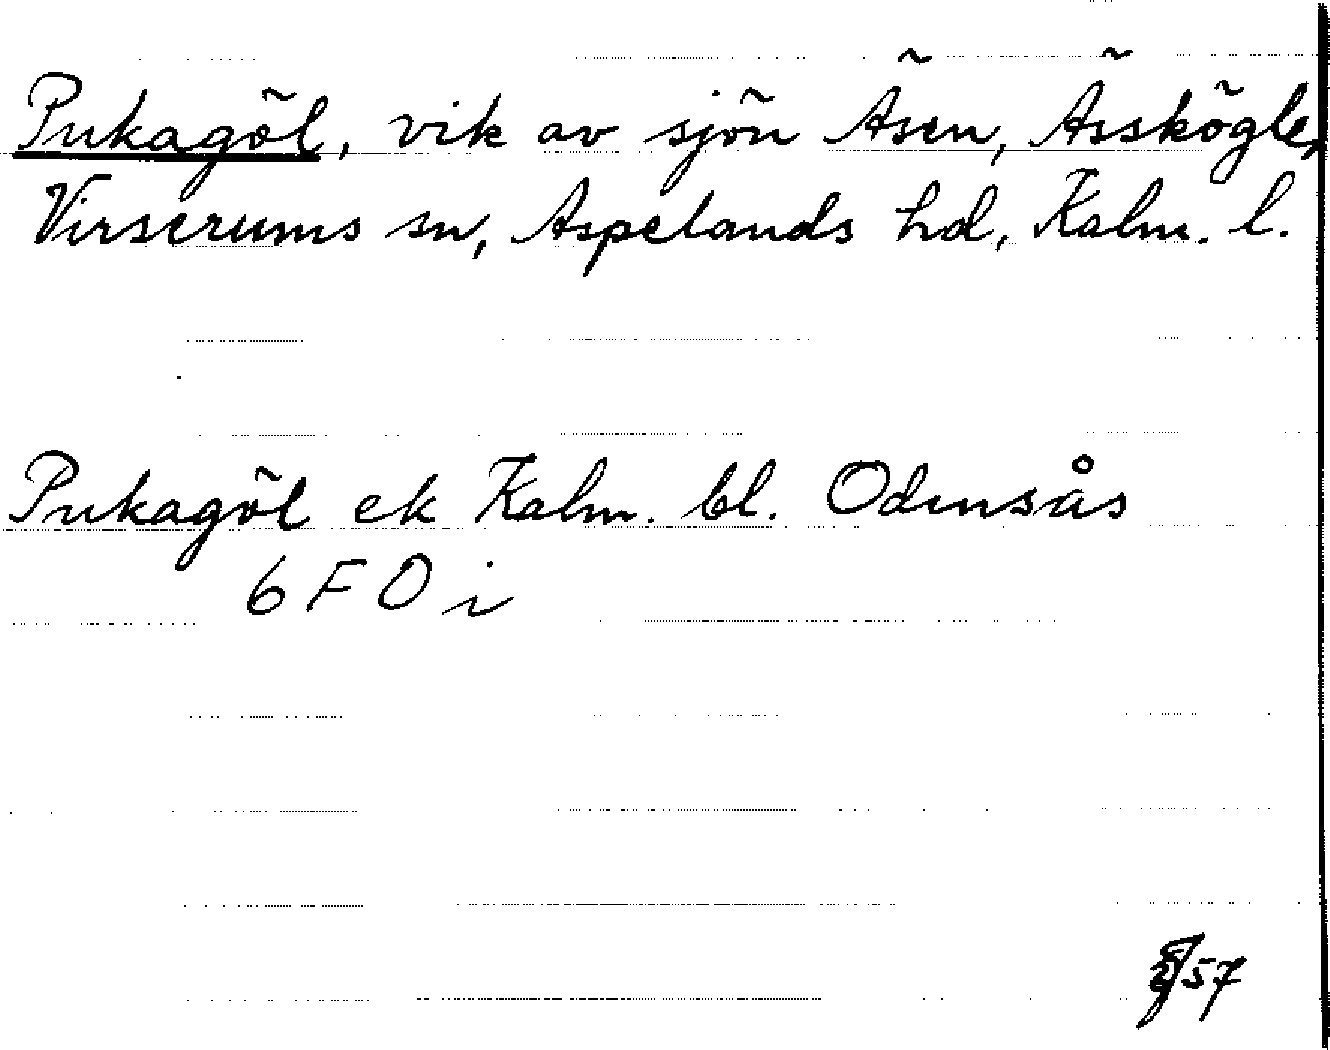 Pukagöl, vik av sjön Äsen, Ässkögle,
Virserums sn, Aspelands hd, Kalm. l.
Pukagöl ek Kalm. bl. Odensås
6 F 0 i
57